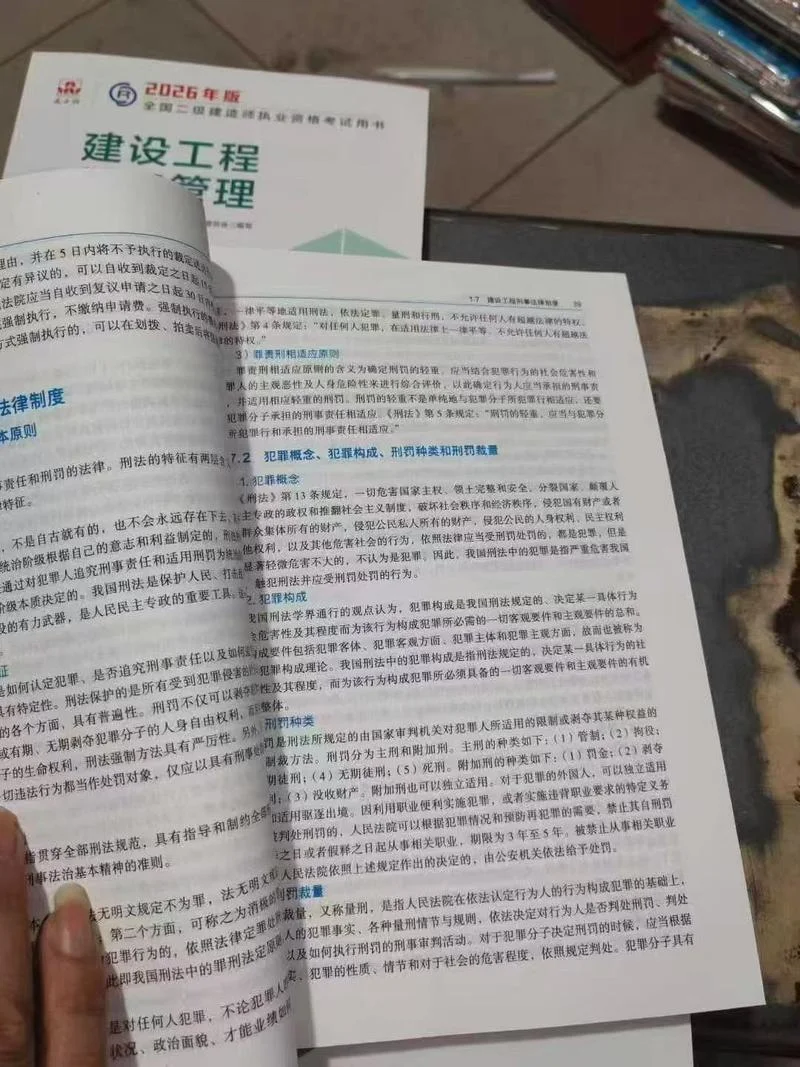 2026年版
全国二级建造师执业资格考试用书
建设工程
管理
理由,并在5日内将不予执行的裁定
定有异议的,可以自收到裁定之日起
法院应当自收到复议申请之日起30日
强制执行,不缴纳申请费。强制执行的
方式强制执行的,可以在划拨、拍卖后
法律制度
本原则
事责任和刑罚的法律。刑法的特征有两层含
特征。
,不是自古就有的,也不会永远存在下去
统治阶级根据自己的意志和利益制定的,
通过对犯罪人追究刑事责任和适用刑罚为
阶级本质决定的。我国刑法是保护人民、打击
段的有力武器,是人民民主专政的重要工具。
征
是如何认定犯罪、是否追究刑事责任以及如何
具有特定性。刑法保护的是所有受到犯罪侵害的
的各个方面,具有普遍性。刑罚不仅可以剥夺
或有期、无期剥夺犯罪分子的人身自由权利,
子的生命权利,刑法强制方法具有严厉性。另外
切违法行为都当作处罚对象,仅应以具有刑事处
指贯穿全部刑法规范,具有指导和制约全部
刑事法治基本精神的准则。
法无明文规定不为罪,法无明文规
第二个方面,可称之为消极的
犯罪行为的,依照法律定罪处
此即我国刑法中的罪刑法定原则
是对任何人犯罪,不论犯罪人
状况、政治面貌、才能业绩如何
1.7 建设工程刑事法律制度 59
,一律平等地适用刑法,依法定罪、量刑和行刑,不允许任何人有超越法律的特权。
刑法》第4条规定:“对任何人犯罪,在适用法律上一律平等。不允许任何人有超越法
的特权。”
3)罪责刑相适应原则
罪责刑相适应原则的含义为确定刑罚的轻重,应当结合犯罪行为的社会危害性和
罪人的主观恶性及人身危险性来进行综合评价,以此确定行为人应当承担的刑事责
,并适用相应轻重的刑罚。刑罚的轻重不是单纯地与犯罪分子所犯罪行相适应,还要
犯罪分子承担的刑事责任相适应。《刑法》第5条规定:“刑罚的轻重,应当与犯罪分
所犯罪行和承担的刑事责任相适应。”
7.2 犯罪概念、犯罪构成、刑罚种类和刑罚裁量
1. 犯罪概念
《刑法》第13条规定,一切危害国家主权、领土完整和安全,分裂国家、颠覆人
主专政的政权和推翻社会主义制度,破坏社会秩序和经济秩序,侵犯国有财产或者
群众集体所有的财产,侵犯公民私人所有的财产,侵犯公民的人身权利、民主权利
他权利,以及其他危害社会的行为,依照法律应当受刑罚处罚的,都是犯罪,但是
显著轻微危害不大的,不认为是犯罪。因此,我国刑法中的犯罪是指严重危害我国
触犯刑法并应受刑罚处罚的行为。
2. 犯罪构成
我国刑法学界通行的观点认为,犯罪构成是我国刑法规定的、决定某一具体行为
会危害性及其程度而为该行为构成犯罪所必需的一切客观要件和主观要件的总和。
构成要件包括犯罪客体、犯罪客观方面、犯罪主体和犯罪主观方面,故而也被称为
犯罪构成理论。我国刑法中的犯罪构成是指刑法规定的,决定某一具体行为的社
性及其程度,而为该行为构成犯罪所必须具备的一切客观要件和主观要件的有机
整体。
刑罚种类
罚是刑法所规定的由国家审判机关对犯罪人所适用的限制或剥夺其某种权益的
制裁方法。刑罚分为主刑和附加刑。主刑的种类如下:(1)管制;(2)拘役;
期徒刑;(4)无期徒刑;(5)死刑。附加刑的种类如下:(1)罚金;(2)剥夺
利;(3)没收财产。附加刑也可以独立适用。对于犯罪的外国人,可以独立适用
加适用驱逐出境。因利用职业便利实施犯罪,或者实施违背职业要求的特定义务
被判处刑罚的,人民法院可以根据犯罪情况和预防再犯罪的需要,禁止其自刑罚
毕之日或者假释之日起从事相关职业,期限为3年至5年。被禁止从事相关职业
人民法院依照上述规定作出的决定的,由公安机关依法给予处罚。
刑罚裁量
裁量,又称量刑,是指人民法院在依法认定行为人的行为构成犯罪的基础上,
人的犯罪事实、各种量刑情节与规则,依法决定对行为人是否判处刑罚、判处
以及如何执行刑罚的刑事审判活动。对于犯罪分子决定刑罚的时候,应当根据
实、犯罪的性质、情节和对于社会的危害程度,依照规定判处。犯罪分子具有